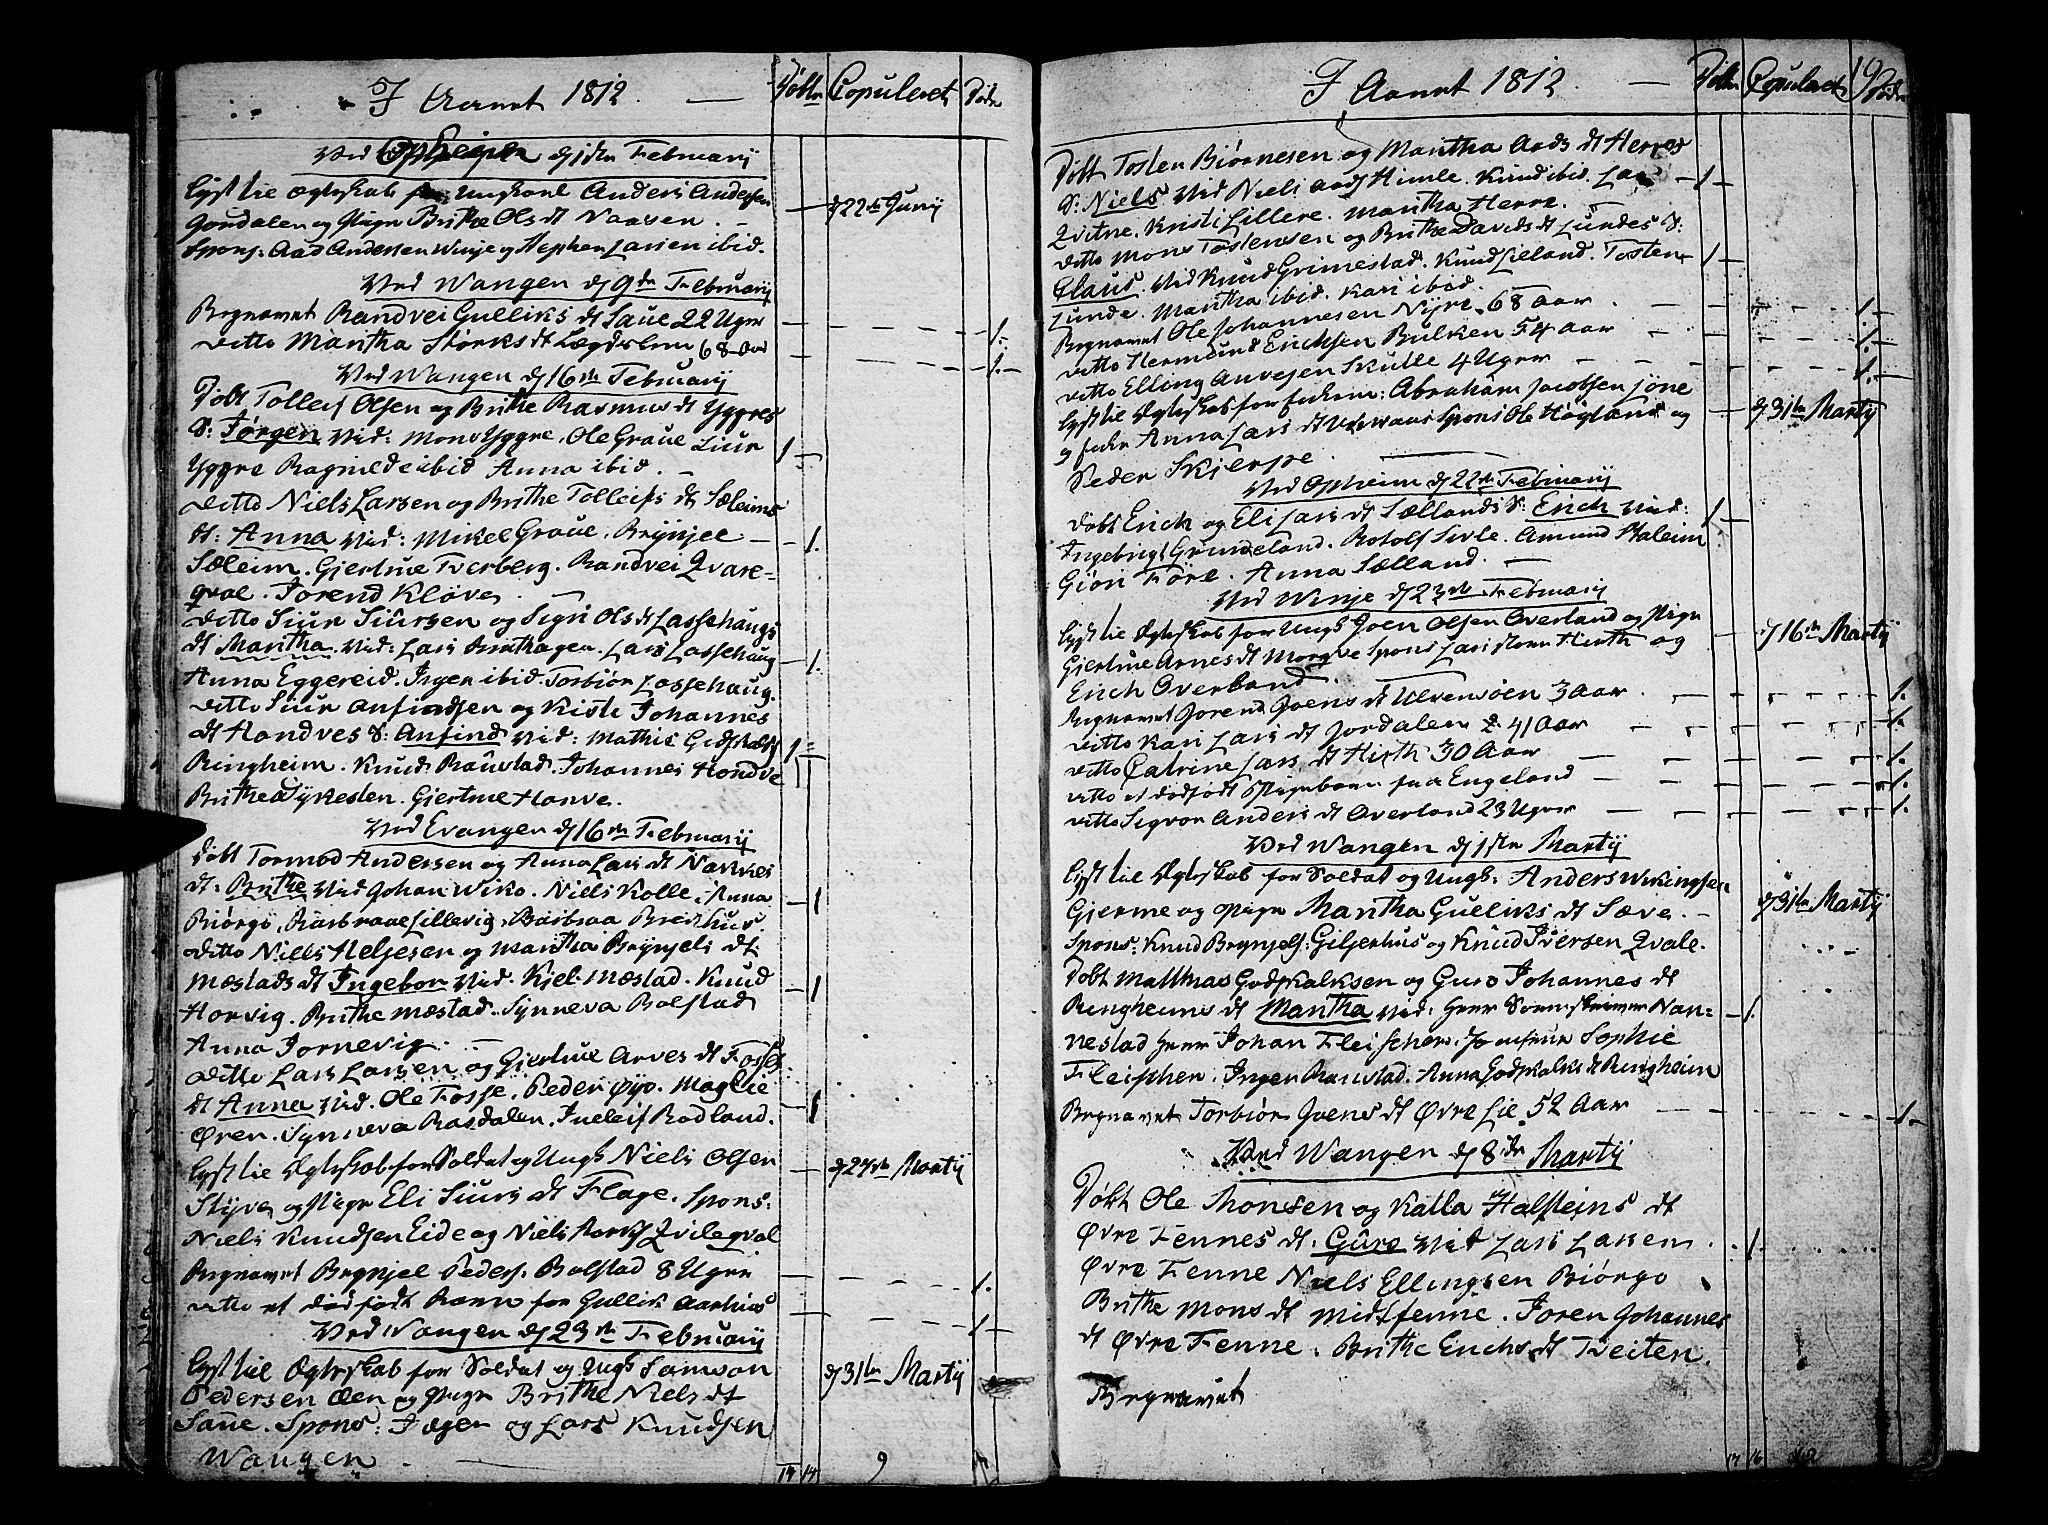 I Aaret 1812. Døbte Copuleret Døde
Ved Opheim d 1ste Februarij
Lyst til Ægteskab for Ungkarl Anders Andersen
Gordalen og Pigen Brithe Ols dt Naasen. d 22de Junij
Spons: Aad Andersen Winje og Stephen Larsen ibid.
Ved Wangen d 9de Februarij
Begravet Randvei Gulliks dt Saue 22 Uger 1.
ditto Martha Størks dt Lægdslem 68 Aar 1.
Ved Wangen d 16de Februarij
Døbt Tolleif Olsen og Brithe Rasmus dt Yggres
S: Jørgen Vid: Mons Yggre. Ole Graue Siur 1
Yggre Ragnilde ibid Anna ibid.
ditto Niels Larsen og Brithe Tolleifs dt Sæleims
dt: Anna Vid: Mikel Graue. Brynjel 1.
Sæleim. Gjertrue Tverberg. Randvei Qvare=
qval. Jorend Kløve.
ditto Siur Siursen og Sigri Ols dt Lassehaugs
dt Martha. Vid: Lars Brithagen. Lars Lassehaug 1.
Anna Eggereid. Inger ibid. Torbiør Lassehaug.
ditto Siur Anfindsen og Kisti Johannes
dt Handves S: Anfind Vid: Mathis Godskalks 1
Ringheim. Knud Raustad. Johannes Hondve
Brithe Dykesten. Gjertrue Honve.
Ved Evangen d 16de Februarij
Døbt Tormod Andersen og Anna Lars dt
dt: Brithe Vid Johan Wiko. Niels Kolle. Anna 1
Biørgo. Barbraae Lillevig. Barbraa Bredhus.
ditto Niels Heljesen og Martha Brynjels dt
Mæstads dt Ingebor Vid. Kjel Mæstad. Knud 1
Horvig. Brithe Mæstad. Synneva Bolstad
Anna Jornevig.
ditto Lars Larsen og Gjertrue Arves dt Fosses
dt Anna Vid. Ole Fosse. Peder Øyo. Maglie 1
Øren. Synneva Rasdalen. Jneleif Rodland.
Lyst til Ægteskab for Soldat og Ungk Niels Olsen d 27de Martij
Styve og Pige Eli Siurs dt Flage. Spons:
Niels Knudsen Eide og Niels Qvileqval
Begravet Brynjel Peders. Bolstad 8 Uger 1.
ditto et dødfødt Barn for Gullik Aarhus 1
Ved Wangen d 23de Februarij
Lyst til Ægteskab for Soldat og Ungk Samson d 31te Martij
Pedersen Øen og Pige Brithe Niels dt
Saue. Spons: og Lars Knudsen
Wangen.
14 14 9
I Aaret 1812. Døbte Copuleret 19 Døde
Døbt Tosten Biørnesen og Martha Aads dt Herres
S: Niels Vid Niels Aads Himle. Knud ibid. Lars 1
Qvitne. Kristi Lillere. Martha Herre.
ditto Mons Tostensen og Brithe Davids dt Lundes S:
Claus. Vid Knud Grimestad. Knud Lieland. Tosten 1
Lunde. Martha ibid. Kari ibid.
Begravet Ole Johannesen Nyre 68 Aar 1.
ditto Hermund Erichsen Bulken 54 Aar 1.
ditto Elling Anvesen Skutle 4 Uger 1.
Lyst til Ægteskab for Enkem: Abraham Jacobsen Jøne d 31te Martij
og Enke Anna Lars dt Spons Ole Høgland og
Peder Skjerpe.
Ved Opheim d 22de Februarij
Døbt Erich og Eli Lars dt Sællands S: Erich Vid: 1
Ingebrigt Grindeland. Rotolf Sivle. Amund Haleim
Giøri Føre. Anna Sælland.
Ved Winje d 23de Februarij
Lyst til Ægteskab for Ungk Joen Olsen Overland og Pige d 16de Martij
Gjertrue Arnes dt Morqve Spons Lars Hirth og
Erich Overland.
Begravet Jorend Joens dt Ulvensøen 3 Aar 1.
ditto Kari Lars dt Jordalen 41 Aar 1.
ditto Catrine Lars dt Hirth 30 Aar 1.
ditto et dødfødt Pigebarn fra Engeland 1.
ditto Sigvor Anders dt Overland 23 Uger 1.
Ved Wangen d 1ste Martij
Lyst til Ægteskab for Soldat og Ungk: Anders Wikingsen d 31te Martij
Gjerme og Pige Martha Gulliks dt Sæve.
Spons: Knud Brynjels: Giljerhus og Knud Iversen Qvale.
Døbt Matthias Godskalksen og Guro Johannes dt
Ringheims dt Martha Vid: Herr Sorenskriver Nan= 1.
nestad Herr Johan Fleischer. Jomfrue Sophie
Fleischer. Inger Raustad. Anna Godskalks dt Ringheim
Begravet Torbiør Joens dt Øvre Lie 52 Aar 1.
Ved Wangen d 8de Martij
Døbt Ole Monsen og Katla Halsteins dt
Øvre Fennes dt: Guro Vid Lars Larsen 1.
Øvre Fenne Niels Ellingsen Biørgo
Brithe Mons dt Midtfenne. Joren Johannes
dt Øvre Fenne. Brithe Erichs dt Tveiten.
Begravet
17 16 12